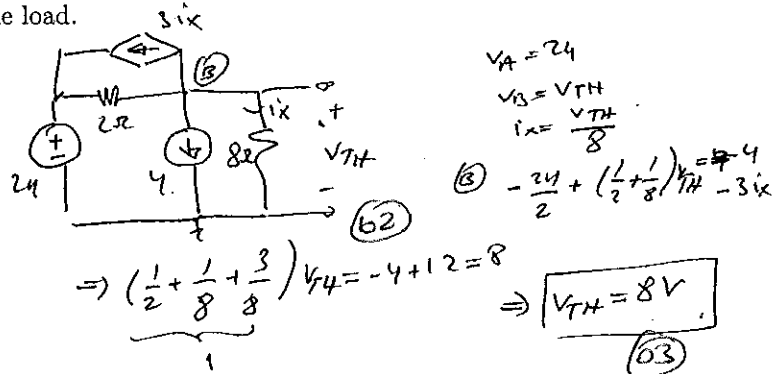 e load.
3ix
B
2Ω
ix
+
VTH
-
24
4
8Ω
b2
VA = 24
VB = VTH
ix = VTH/8
B - 24/2 + (1/2 + 1/8) VTH = -4 - 3ix
⇒ (1/2 + 1/8 + 3/8) VTH = -4 + 12 = 8
1
⇒ VTH = 8V
03